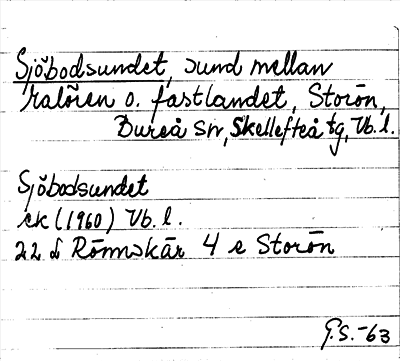 Sjöbodsundet, sund mellan
Kalören o. fastlandet, Storön,
Bureå sn, Skellefteå tg, Vb. l.
Sjöbodsundet
ek (1960) Vb. l.
22 d Rönnskär 4 e Storön
G.S. -63